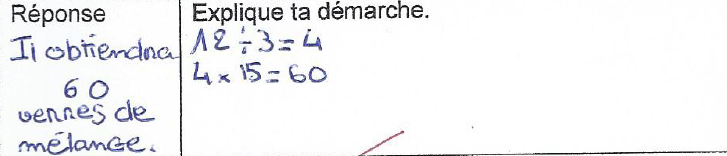 Réponse
Explique ta démarche.
Il obtiendra
60
verres de
mélange.
12 ÷ 3 = 4
4 × 15 = 60